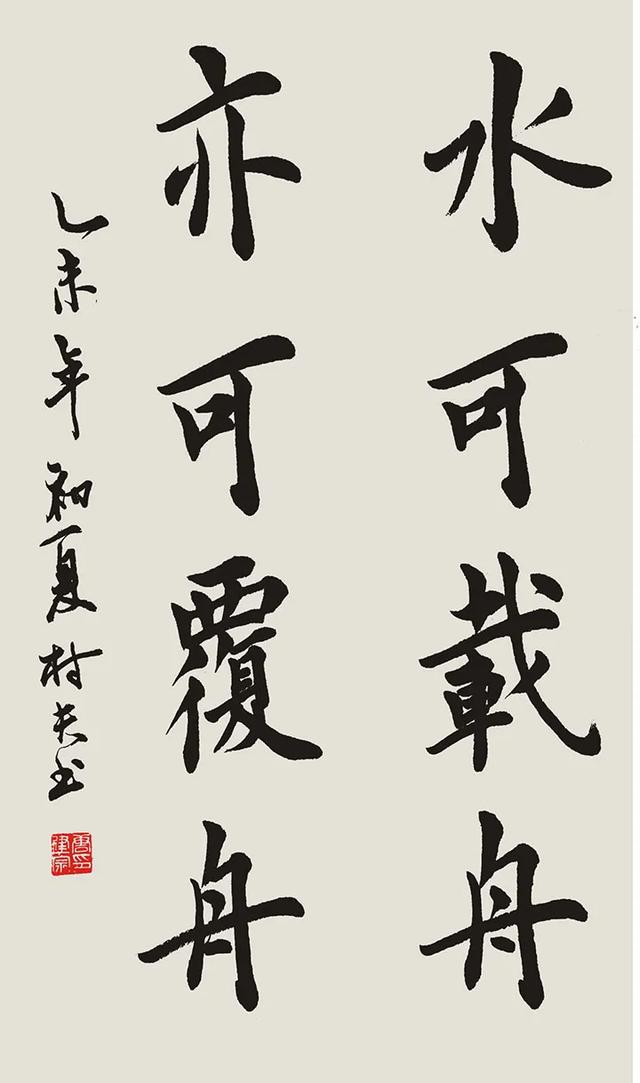 水可載舟
亦可覆舟
乙未年初夏村夫书